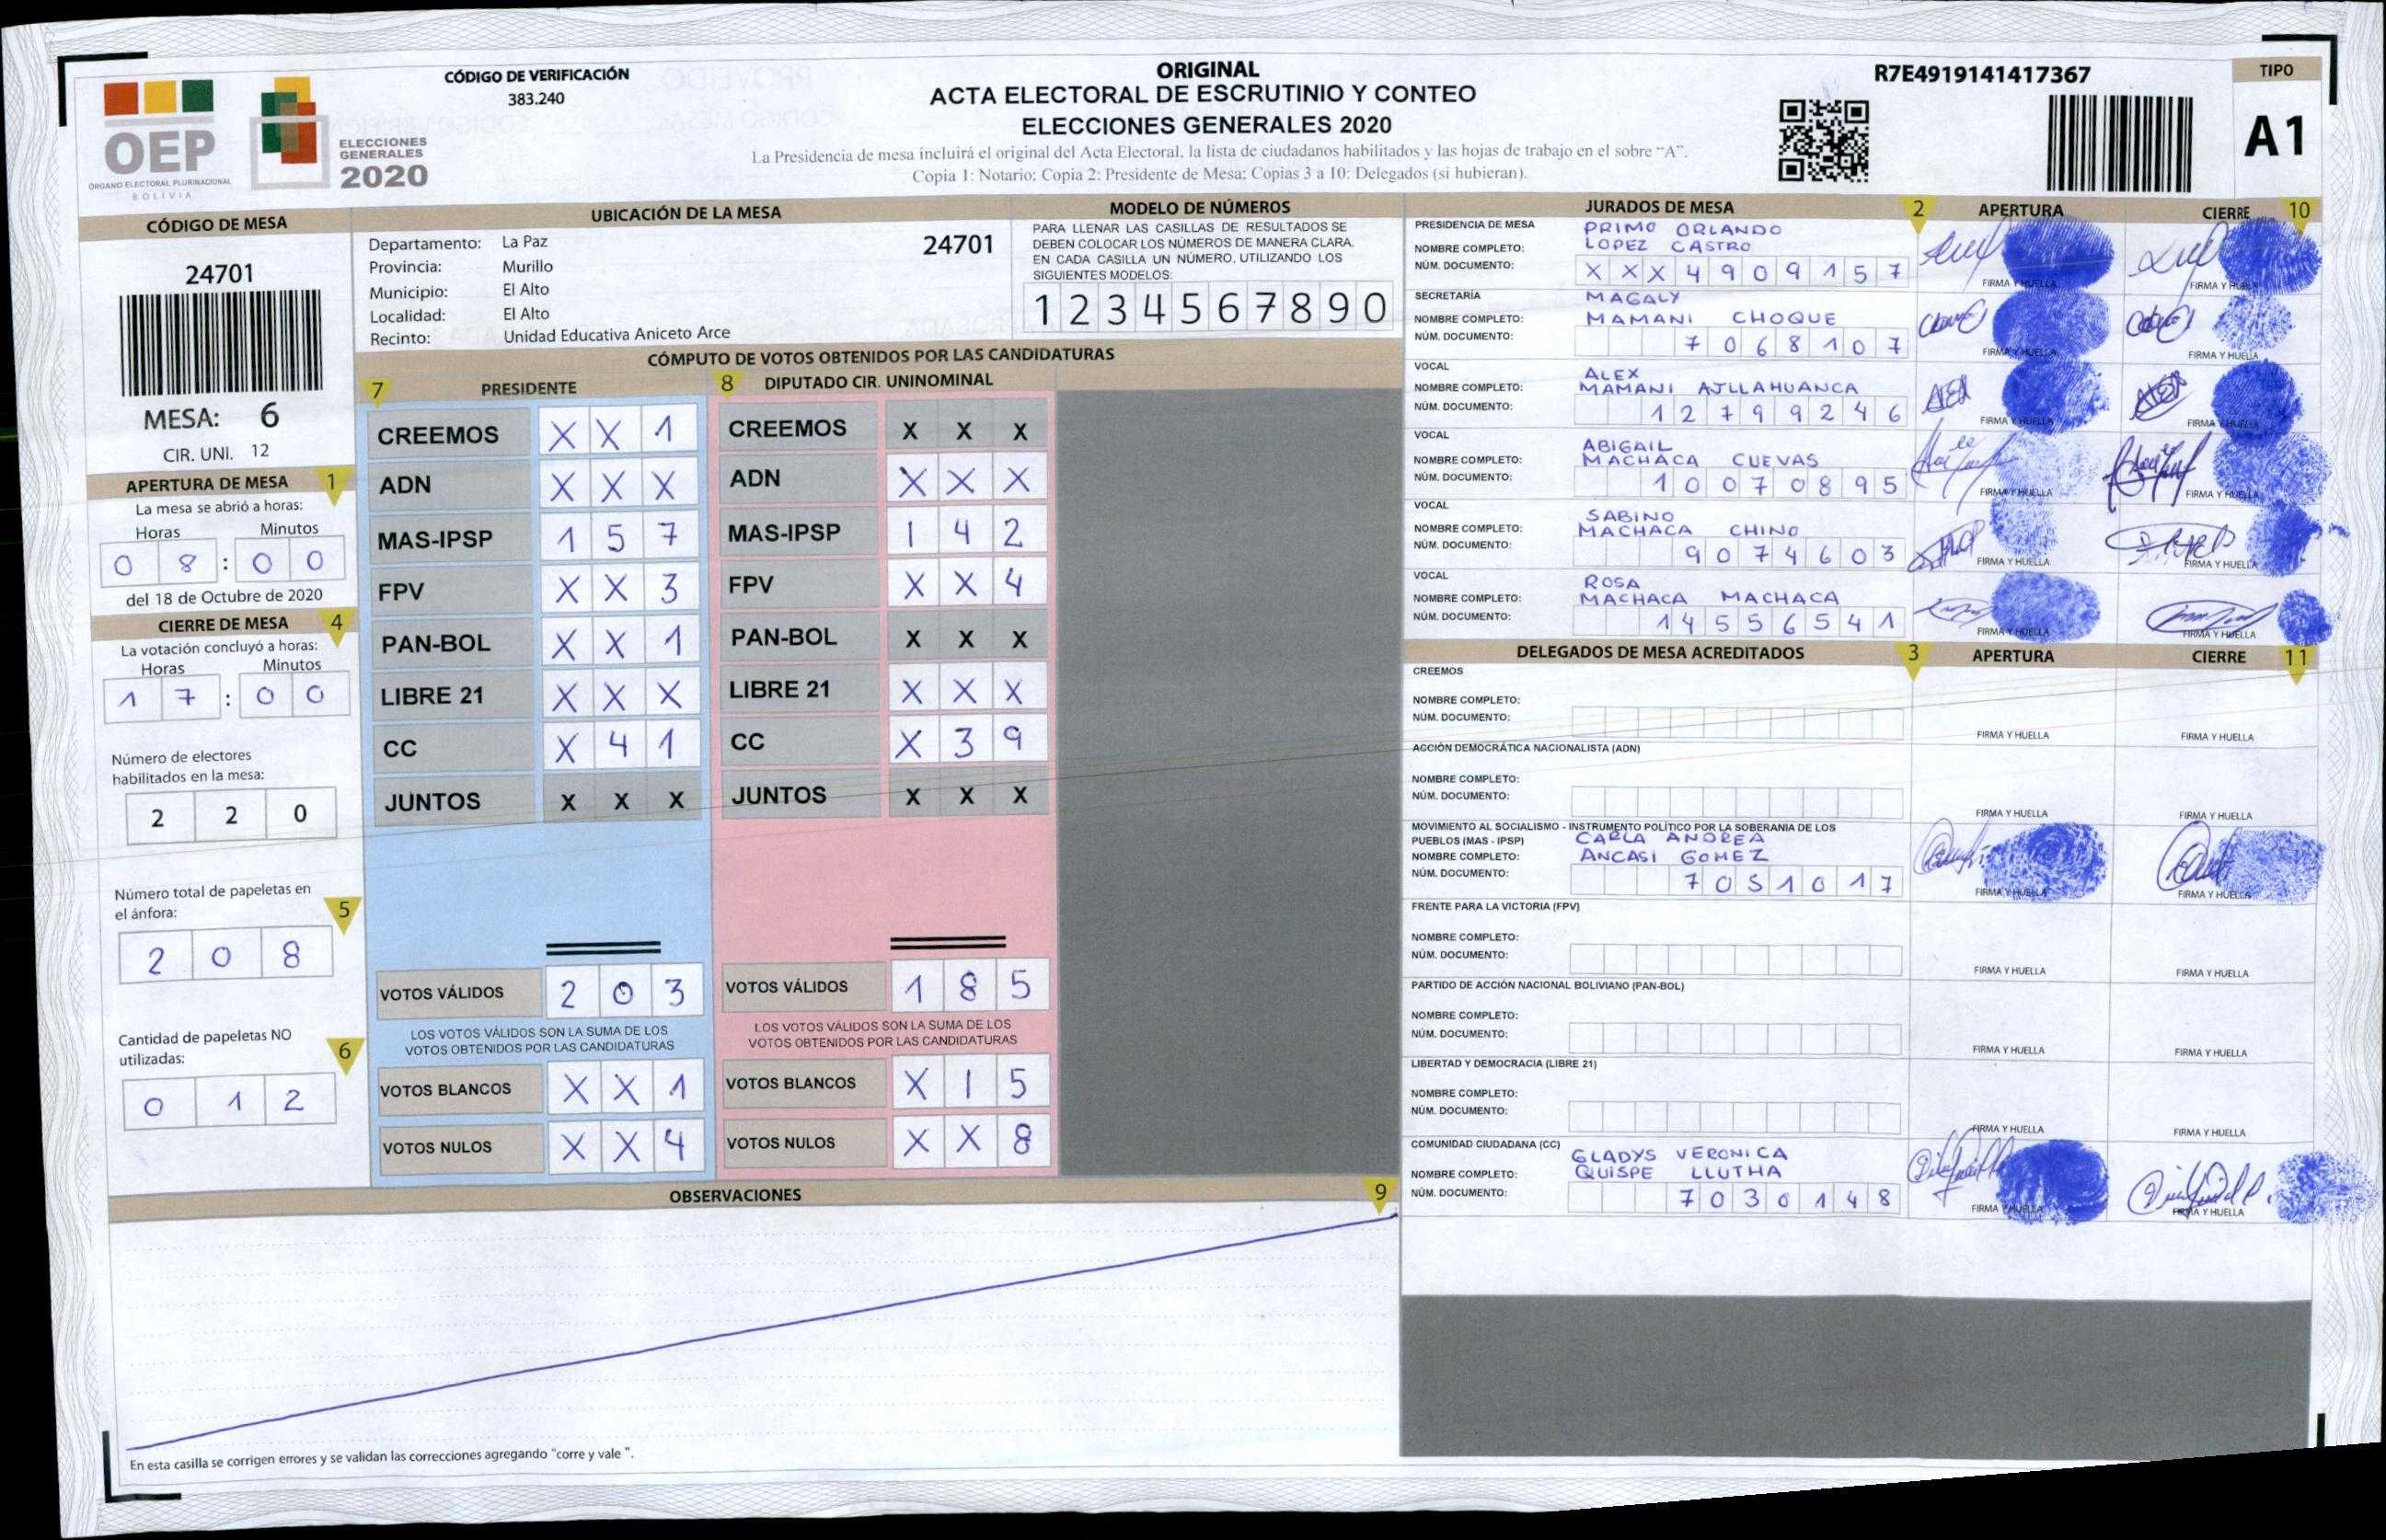 OEP
ORGANO ELECTORAL PLURINACIONAL
BOLIVIA
ELECCIONES
GENERALES
2020
CÓDIGO DE VERIFICACIÓN
383.240
ORIGINAL
ACTA ELECTORAL DE ESCRUTINIO Y CONTEO
ELECCIONES GENERALES 2020
La Presidencia de mesa incluirá el original del Acta Electoral, la lista de ciudadanos habilitados y las hojas de trabajo en el sobre “A”.
Copia 1: Notario; Copia 2: Presidente de Mesa; Copias 3 a 10: Delegados (si hubieran).
R7E4919141417367
TIPO
A1
CÓDIGO DE MESA
24701
MESA: 6
CIR. UNI. 12
APERTURA DE MESA 1
La mesa se abrió a horas:
Horas Minutos
0 8 : 0 0
del 18 de Octubre de 2020
CIERRE DE MESA 4
La votación concluyó a horas:
Horas Minutos
1 7 : 0 0
Número de electores
habilitados en la mesa:
2 2 0
Número total de papeletas en
el ánfora: 5
2 0 8
Cantidad de papeletas NO
utilizadas: 6
0 1 2
UBICACIÓN DE LA MESA
Departamento: La Paz 24701
Provincia: Murillo
Municipio: El Alto
Localidad: El Alto
Recinto: Unidad Educativa Aniceto Arce
MODELO DE NÚMEROS
PARA LLENAR LAS CASILLAS DE RESULTADOS SE
DEBEN COLOCAR LOS NÚMEROS DE MANERA CLARA.
EN CADA CASILLA UN NÚMERO, UTILIZANDO LOS
SIGUIENTES MODELOS:
1 2 3 4 5 6 7 8 9 0
CÓMPUTO DE VOTOS OBTENIDOS POR LAS CANDIDATURAS
7 PRESIDENTE
CREEMOS X X 1
ADN X X X
MAS-IPSP 1 5 7
FPV X X 3
PAN-BOL X X 1
LIBRE 21 X X X
CC X 4 1
JUNTOS X X X
VOTOS VÁLIDOS 2 0 3
LOS VOTOS VÁLIDOS SON LA SUMA DE LOS
VOTOS OBTENIDOS POR LAS CANDIDATURAS
VOTOS BLANCOS X X 1
VOTOS NULOS X X 4
8 DIPUTADO CIR. UNINOMINAL
CREEMOS X X X
ADN X X X
MAS-IPSP 1 4 2
FPV X X 4
PAN-BOL X X X
LIBRE 21 X X X
CC X 3 9
JUNTOS X X X
VOTOS VÁLIDOS 1 8 5
LOS VOTOS VÁLIDOS SON LA SUMA DE LOS
VOTOS OBTENIDOS POR LAS CANDIDATURAS
VOTOS BLANCOS X 1 5
VOTOS NULOS X X 8
OBSERVACIONES 9
En esta casilla se corrigen errores y se validan las correcciones agregando "corre y vale ".
JURADOS DE MESA 2 APERTURA CIERRE 10
PRESIDENCIA DE MESA PRIMO ORLANDO
NOMBRE COMPLETO: LOPEZ CASTRO
NÚM. DOCUMENTO: X X X 4 9 0 9 1 5 7
FIRMA Y HUELLA FIRMA Y HUELLA
SECRETARÍA MAGALY
NOMBRE COMPLETO: MAMANI CHOQUE
NÚM. DOCUMENTO: 7 0 6 8 1 0 7
FIRMA Y HUELLA FIRMA Y HUELLA
VOCAL ALEX
NOMBRE COMPLETO: MAMANI AJLLAHUANCA
NÚM. DOCUMENTO: 1 2 7 9 9 2 4 6
FIRMA Y HUELLA FIRMA Y HUELLA
VOCAL ABIGAIL
NOMBRE COMPLETO: MACHACA CUEVAS
NÚM. DOCUMENTO: 1 0 0 7 0 8 9 5
FIRMA Y HUELLA FIRMA Y HUELLA
VOCAL SABINO
NOMBRE COMPLETO: MACHACA CHINO
NÚM. DOCUMENTO: 9 0 7 4 6 0 3
FIRMA Y HUELLA FIRMA Y HUELLA
VOCAL ROSA
NOMBRE COMPLETO: MACHACA MACHACA
NÚM. DOCUMENTO: 1 4 5 5 6 5 4 1
FIRMA Y HUELLA FIRMA Y HUELLA
DELEGADOS DE MESA ACREDITADOS 3 APERTURA CIERRE 11
CREEMOS
NOMBRE COMPLETO:
NÚM. DOCUMENTO:
FIRMA Y HUELLA FIRMA Y HUELLA
ACCIÓN DEMOCRÁTICA NACIONALISTA (ADN)
NOMBRE COMPLETO:
NÚM. DOCUMENTO:
FIRMA Y HUELLA FIRMA Y HUELLA
MOVIMIENTO AL SOCIALISMO - INSTRUMENTO POLÍTICO POR LA SOBERANIA DE LOS
PUEBLOS (MAS - IPSP) CARLA ANDREA
NOMBRE COMPLETO: ANCASI GOMEZ
NÚM. DOCUMENTO: 7 0 5 1 0 1 7
FIRMA Y HUELLA FIRMA Y HUELLA
FRENTE PARA LA VICTORIA (FPV)
NOMBRE COMPLETO:
NÚM. DOCUMENTO:
FIRMA Y HUELLA FIRMA Y HUELLA
PARTIDO DE ACCIÓN NACIONAL BOLIVIANO (PAN-BOL)
NOMBRE COMPLETO:
NÚM. DOCUMENTO:
FIRMA Y HUELLA FIRMA Y HUELLA
LIBERTAD Y DEMOCRACIA (LIBRE 21)
NOMBRE COMPLETO:
NÚM. DOCUMENTO:
FIRMA Y HUELLA FIRMA Y HUELLA
COMUNIDAD CIUDADANA (CC) GLADYS VERONICA
NOMBRE COMPLETO: QUISPE LLUTHA
NÚM. DOCUMENTO: 7 0 3 0 1 4 8
FIRMA Y HUELLA FIRMA Y HUELLA